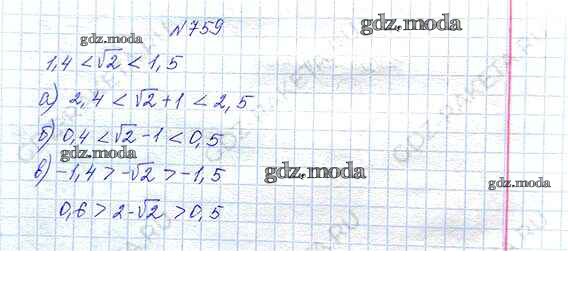 №759
gdz.moda
gdz.moda
1,4 < √2 < 1,5
а) 2,4 < √2+1 < 2,5
б) 0,4 < √2-1 < 0,5
gdz.moda
в) -1,4 > -√2 > -1,5
gdz.moda
gdz.moda
0,6 > 2-√2 > 0,5